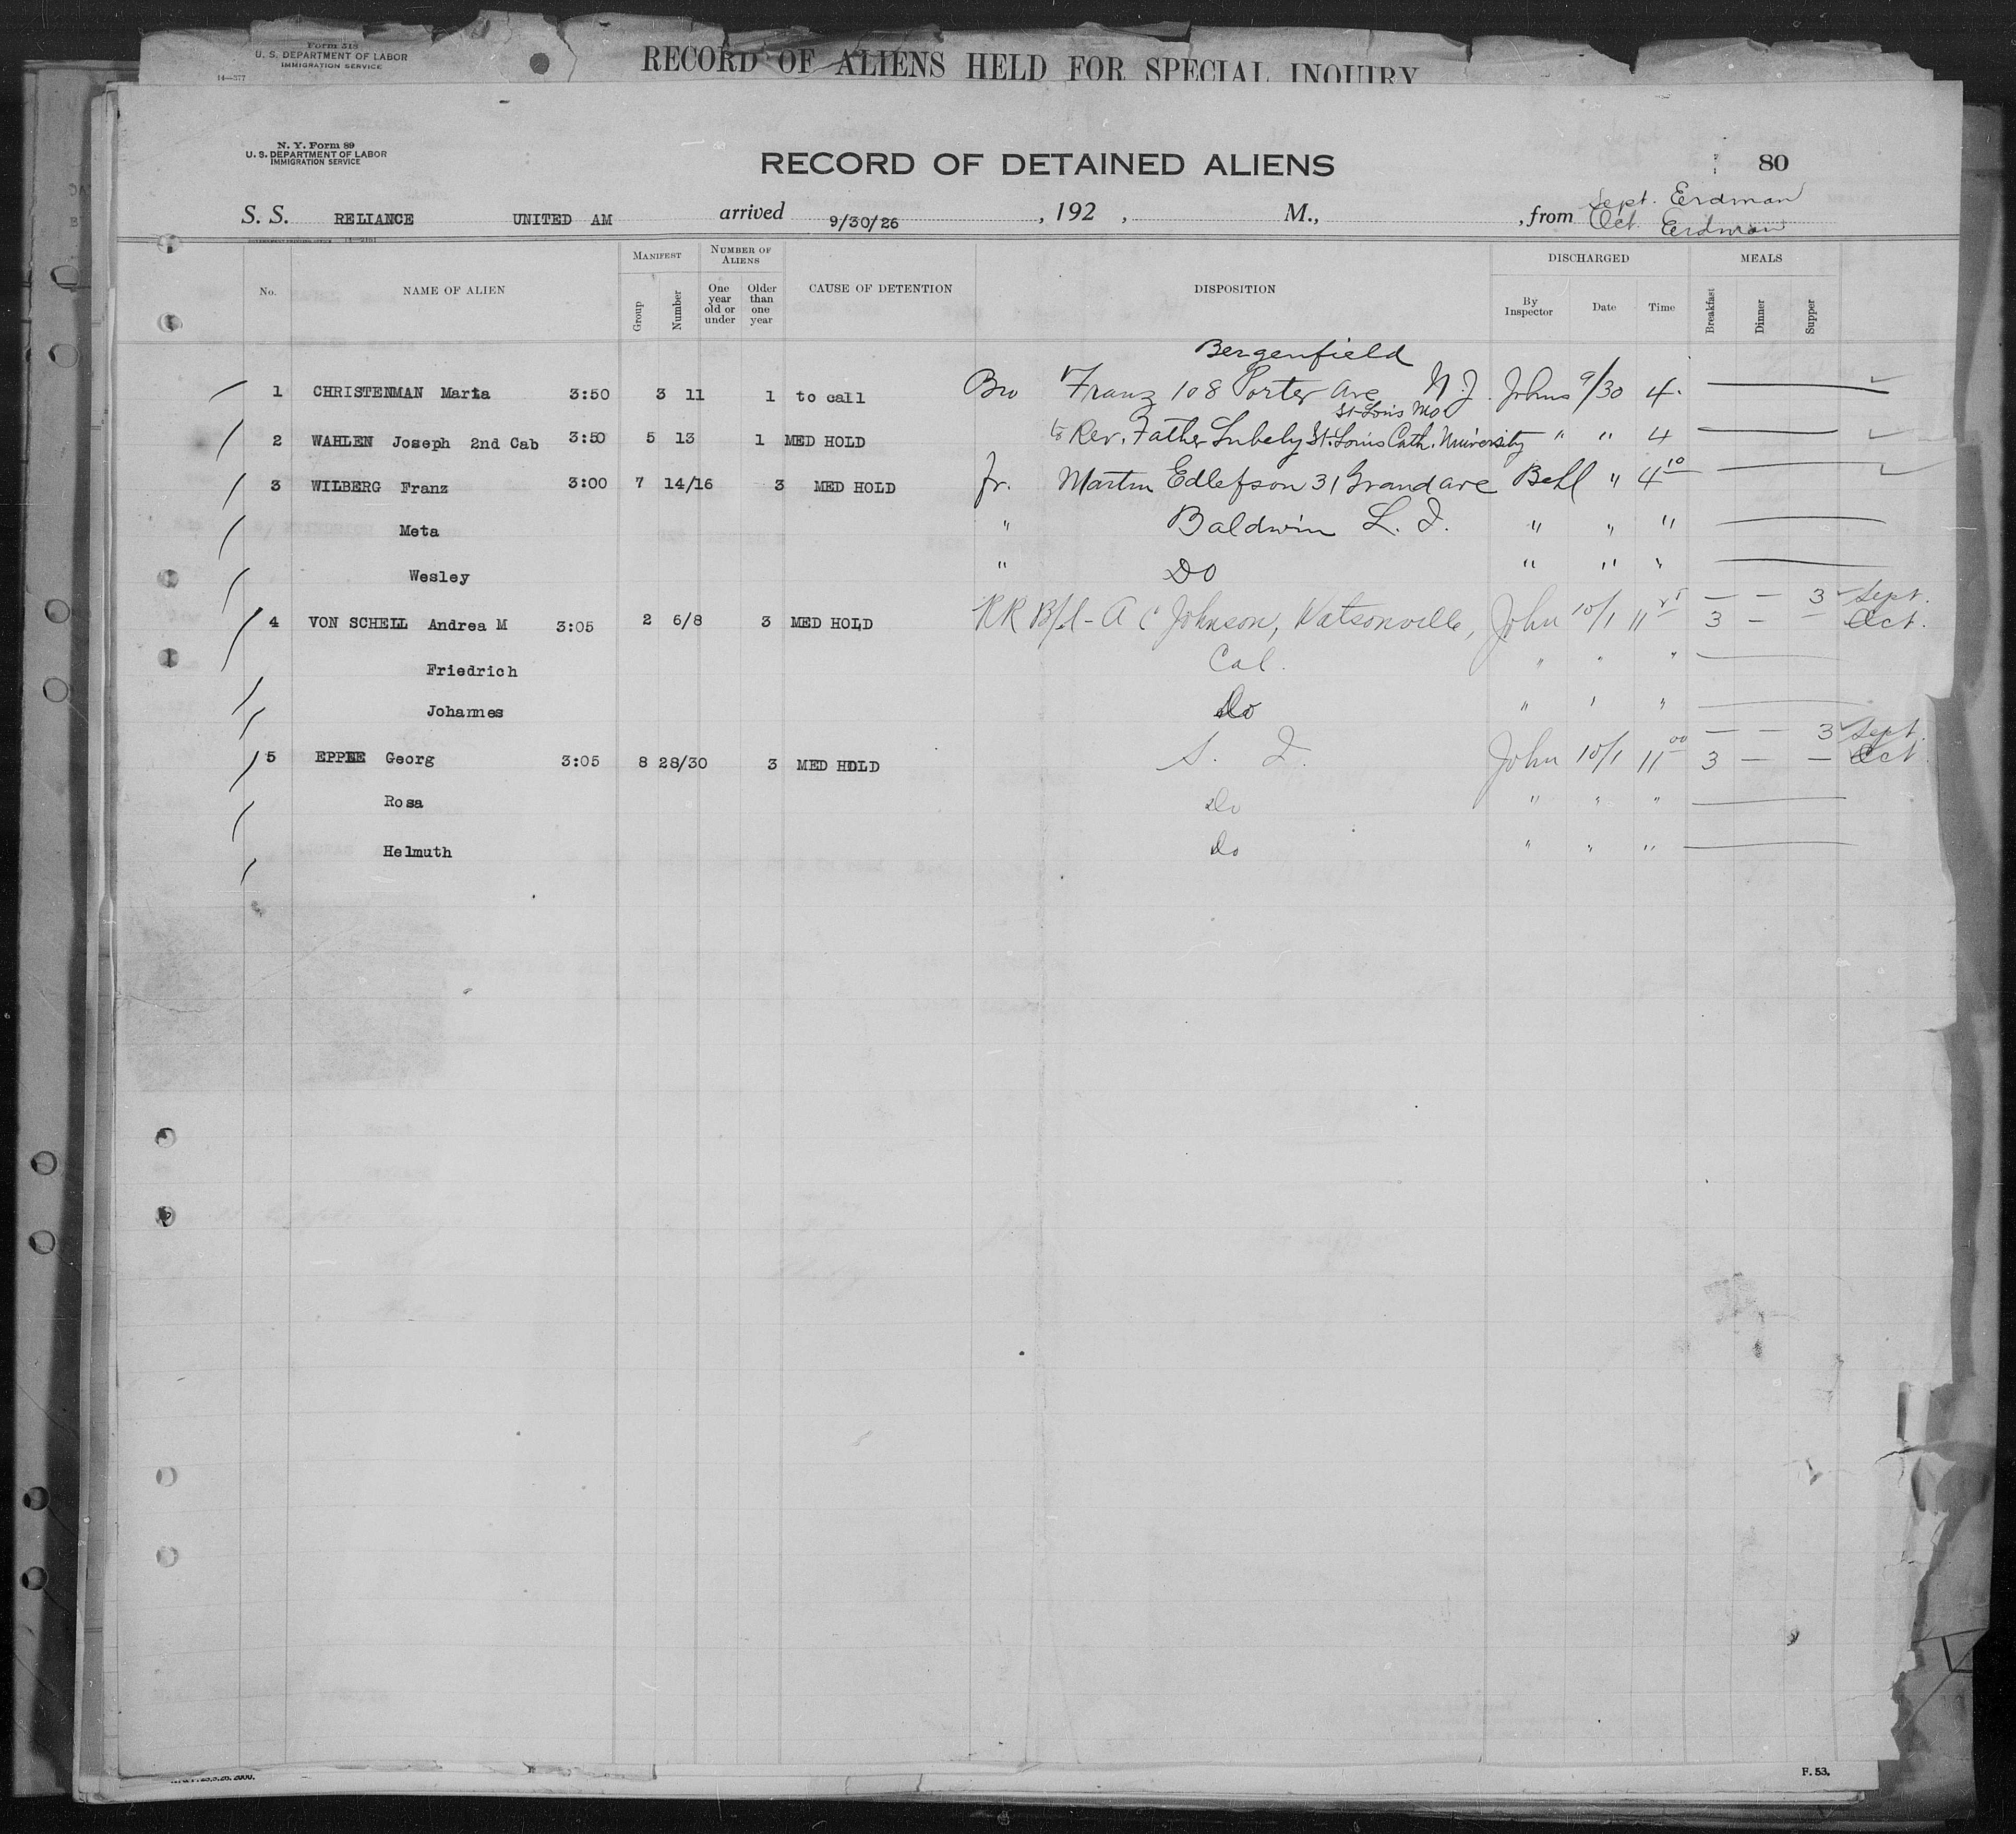 Form 318
U. S. DEPARTMENT OF LABOR
IMMIGRATION SERVICE
14—377
RECORD OF ALIENS HELD FOR SPECIAL INQUIRY
N. Y. Form 89
U. S. DEPARTMENT OF LABOR
IMMIGRATION SERVICE
RECORD OF DETAINED ALIENS
80
Sept. Erdman
S. S. RELIANCE UNITED AM arrived 9/30/26, 192 , M., , from Oct. Erdman
MANIFEST NUMBER OF ALIENS DISCHARGED MEALS
No. NAME OF ALIEN Group Number One year old or under Older than one year CAUSE OF DETENTION DISPOSITION By Inspector Date Time Breakfast Dinner Supper
Bergenfield
1 CHRISTENMAN Maria 3:50 3 11 1 to call Bro Franz 108 Porter Ave N.J. Johns 9/30 4.
St Louis Mo
2 WAHLEN Joseph 2nd Cab 3:50 5 13 1 MED HOLD to Rev. Father St. Louis Cath. University " " 4
3 WILBERG Franz 3:00 7 14/16 3 MED HOLD fr. Martin Edlefson 31 Grand ave " 4 10
Meta " Baldwin L. I. " " "
Wesley " Do " " "
— — 3 Sept.
4 VON SCHELL Andrea M 3:05 2 6/8 3 MED HOLD RR A C Johnson, Watsonville, John 10/1 11 3 — — Oct.
Friedrich Cal. " " "
Johannes Do " " "
— — 3 Sept.
5 EPPLE Georg 3:05 8 28/30 3 MED HOLD S. I. John 10/1 11 00 3 — — Oct
Rosa Do " " "
Helmuth Do " " "
F. 53.